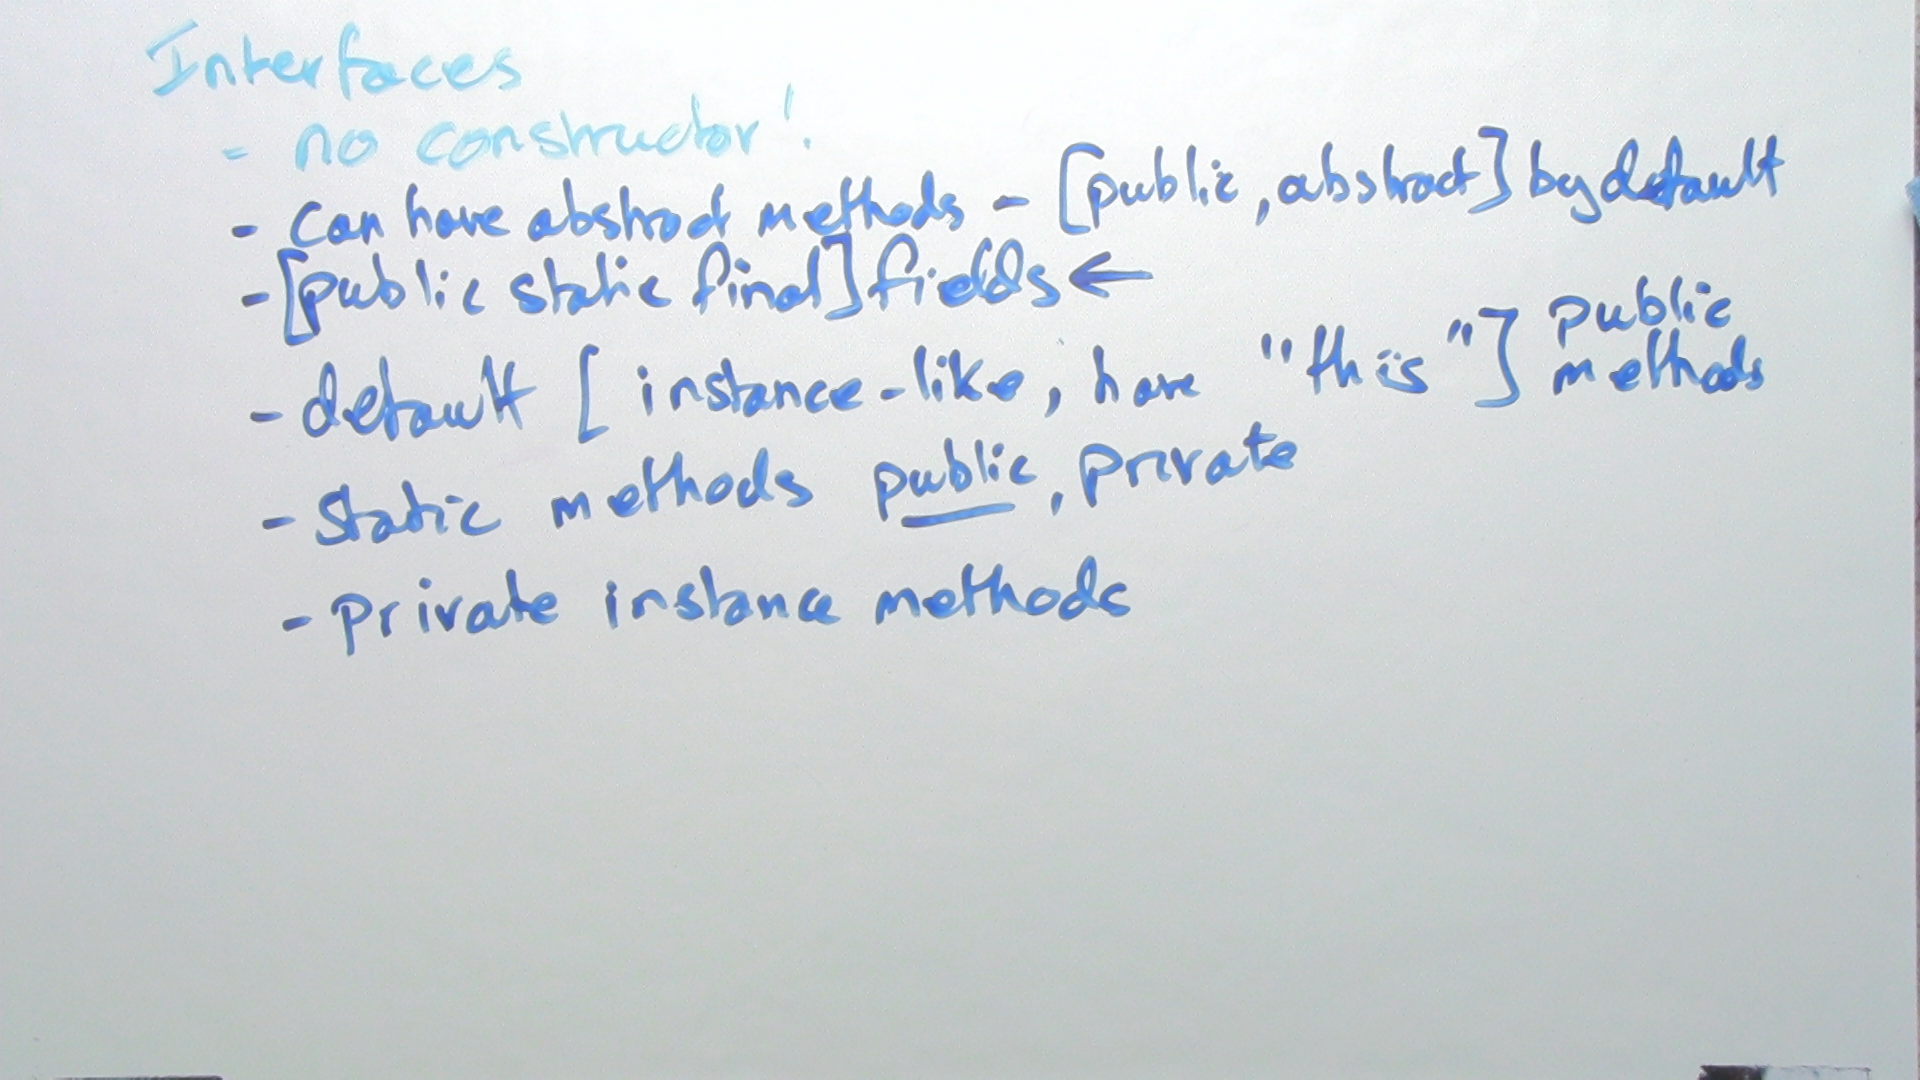 Interfaces
- no constructor!
- can have abstract methods - [public, abstract] by default
- [public static final] fields ←
- default [ instance-like, have "this" ] public methods
- static methods public, private
- private instance methods